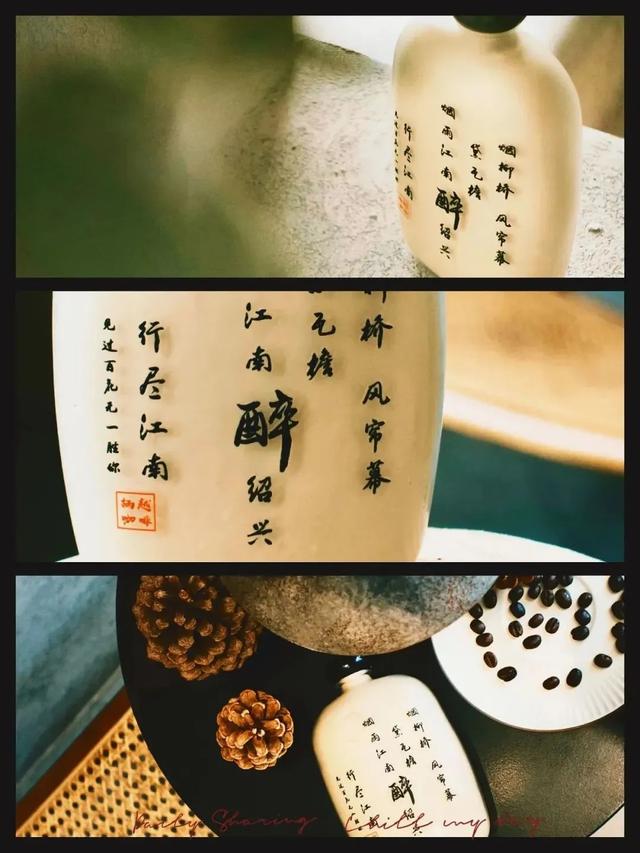 烟柳桥 风帘幕
黛瓦檐
烟雨江南醉绍兴
行尽江南
桥 风帘幕
瓦檐
江南醉绍兴
行尽江南
见过百花无一胜你
越
咖啡
烟柳桥 风帘幕
黛瓦檐
烟雨江南醉绍兴
行尽江
Daily Sharing Chill my day